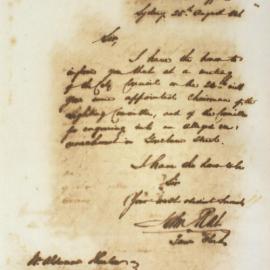 Sydney 25th August
Sir,
I have the honor to
inform you that at a meeting
of the City Council on the 24th inst
you were appointed Chairman of the
Lighting Committee, and of the Committee
for enquiring into an alleged en-
croachment in Gresham Street.
I have the honor to be
Sir
Your most obedient Servant
Town Clerk